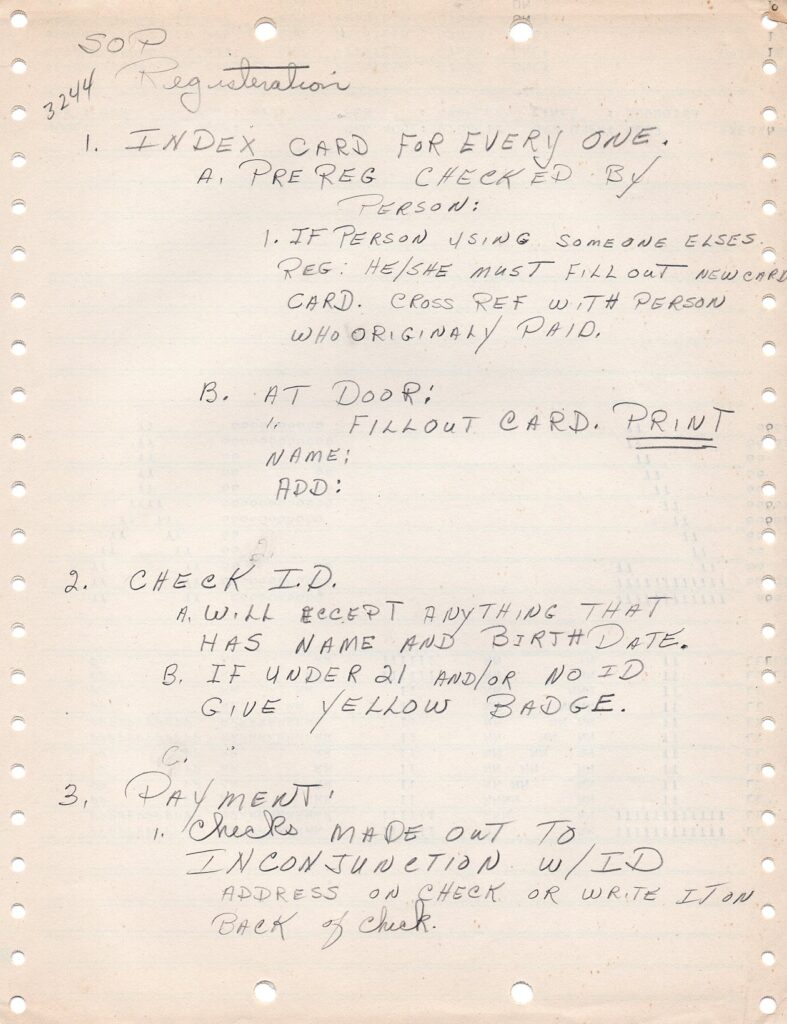 SOP
Registeration
3244
1. INDEX CARD FOR EVERY ONE.
A. PRE REG CHECKED BY
PERSON:
1. IF PERSON USING SOMEONE ELSES.
REG: HE/SHE MUST FILL OUT NEW CARD
CARD. CROSS REF WITH PERSON
WHO ORIGINALY PAID.
B. AT DOOR:
1. FILLOUT CARD. PRINT
NAME:
ADD:
2. CHECK I.D.
A. WILL ECCEPT ANYTHING THAT
HAS NAME AND BIRTH DATE.
B. IF UNDER 21 AND/OR NO ID
GIVE YELLOW BADGE.
C.
3. PAYMENT:
1. Checks MADE OUT TO
INCONJUNCTION W/ID
ADDRESS ON CHECK OR WRITE IT ON
BACK of check.